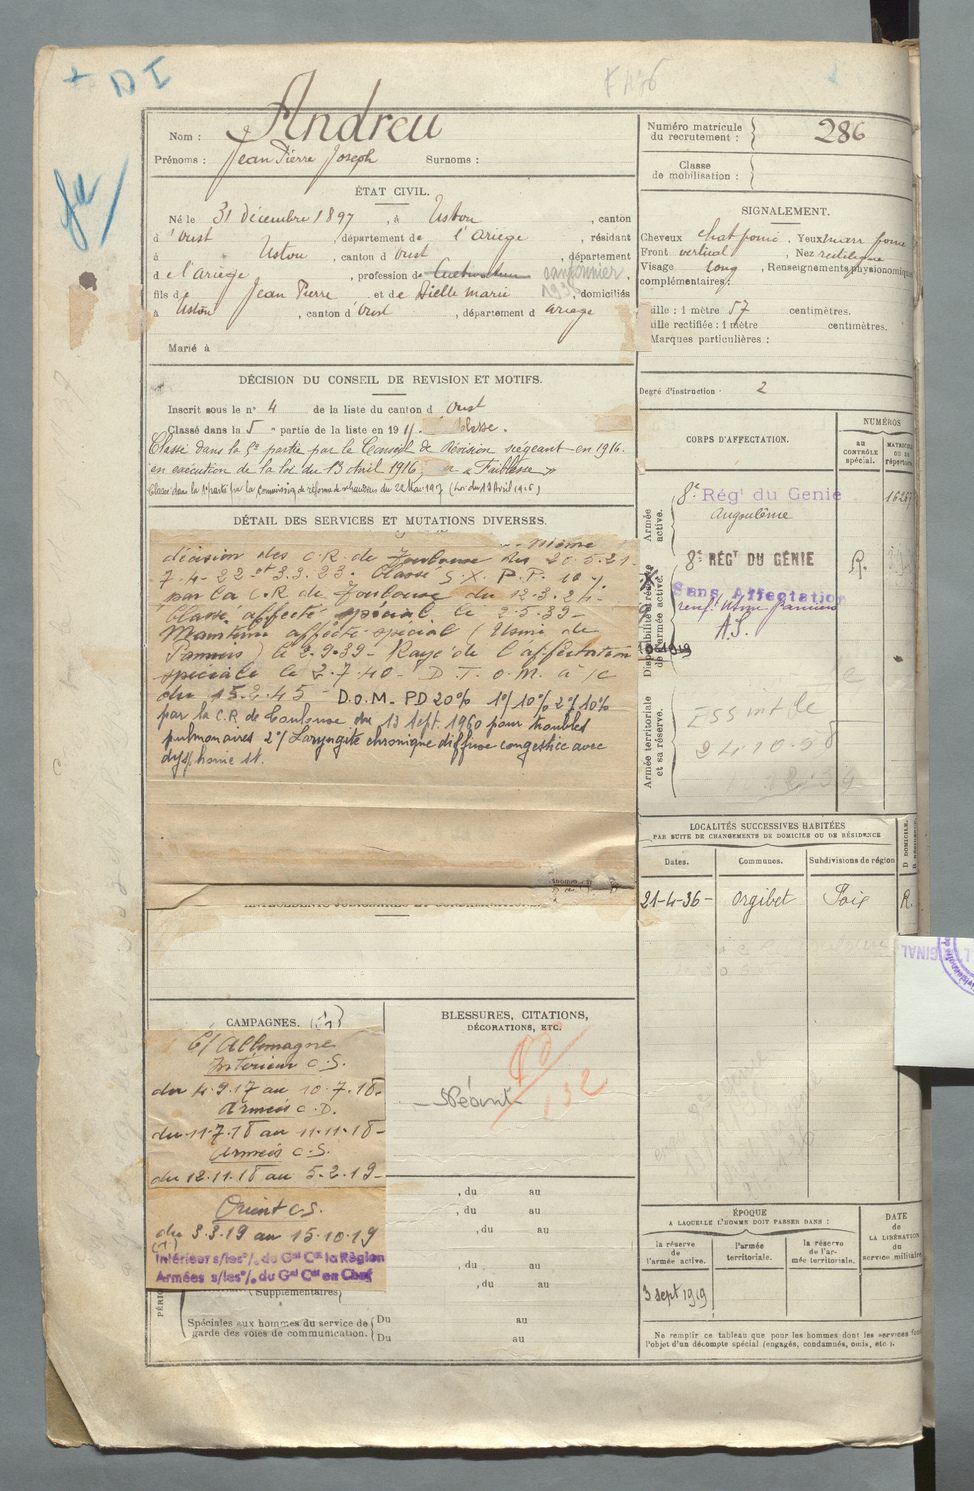 + D I
Nom : Andreu
Prénoms : Jean Pierre Joseph Surnoms :
Numéro matricule du recrutement : 286
Classe de mobilisation :
ÉTAT CIVIL.
Né le 31 décembre 1897, à Ustou, canton
d'Oust, département de l'Ariège, résidant
à Ustou, canton d'Oust, département
de l'Ariège, profession de Cultivateur cantonnier
fils de Jean Pierre et de Marie, domiciliés
à Ustou, canton d'Oust, département d Ariège
Marié à
SIGNALEMENT.
Cheveux chat foncé, Yeux marr foncé
Front vertical, Nez rectiligne
Visage long, Renseignements physionomiques
complémentaires :
Taille : 1 mètre 57 centimètres.
Taille rectifiée : 1 mètre centimètres.
Marques particulières :
Degré d'instruction : 2
DÉCISION DU CONSEIL DE REVISION ET MOTIFS.
Inscrit sous le n° 4 de la liste du canton d'Oust
Classé dans la 5e partie de la liste en 191
Classé dans la 5e partie par le Conseil de Révision siégeant en 1916.
en exécution de la loi du 13 Avril 1916. « Faiblesse »
Classé dans la 1e partie par la commission de réforme de du 22 Mai 1917 (Loi du 13 Avril 1916)
DÉTAIL DES SERVICES ET MUTATIONS DIVERSES.
décision des C.R. de Toulouse des 20.5.21-
7-4-22 et 3.3.23. Classé S.X. P.P. 10 %
par la C.R de Toulouse du 12.3.24-
Classé affecté spécial le 2.5.39-
Maintenu affecté spécial (Usine de
Pamiers) le 2.9.39- Rayé de l'affectation
spéciale le 7.40- D.T.O.M. à /c
du 15.2.45 - D.O.M. PD 20% 1°/ 10% 2°/ 10%
par la C.R. de Toulouse du 13 Sept. 1960 pour troubles
pulmonaires 2°/ Laryngite chronique diffuse congestive avec
dysphonie st.
CORPS D'AFFECTATION.
NUMÉROS
au CONTRÔLE spécial.
MATRICULE OU AU répertoire
Armée active.
8e Régt du Génie
Angoulême
Disponibilité et réserve de l'armée active.
8e RÉGT DU GÉNIE
Sans Affectation
renf. Usine Pamiers
A.S.
Armée territoriale et sa réserve.
ESS int de
24.10.58
LOCALITÉS SUCCESSIVES HABITÉES
PAR SUITE DE CHANGEMENTS DE DOMICILE OU DE RÉSIDENCE
Dates. Communes. Subdivisions de région
21-4-36- Orgibet Foix R.
ANTÉCÉDENTS JUDICIAIRES ET CONDAMNATIONS.
CAMPAGNES. (1)
C/ Allemagne
Intérieur C.S.
du 4.9.17 au 10.7.18-
Armées C.D.
du 11.7.18 au 11.11.18-
Armées C.S.
du 12.11.18 au 5.2.19-
Orient C.S.
du 3.3.19 au 15.10.19
(1)
Intérieur s/les o/. du Gal Cdt la Région
Armées s/les o/. du Gal Cdt en Chef
BLESSURES, CITATIONS,
DÉCORATIONS, ETC.
- Néant -
, du au
, du au
, du au
, du au
, du au
(Supplémentaires)
Spéciales aux hommes du service de garde des voies de communication. Du au
Du au
ÉPOQUE
A LAQUELLE L'HOMME DOIT PASSER DANS :
la réserve de l'armée active.
l'armée territoriale.
la réserve de l'armée territoriale.
DATE de LA LIBÉRATION du service militaire
3 sept 1919
Ne remplir ce tableau que pour les hommes dont les services font
l'objet d'un décompte spécial (engagés, condamnés, omis, etc.).